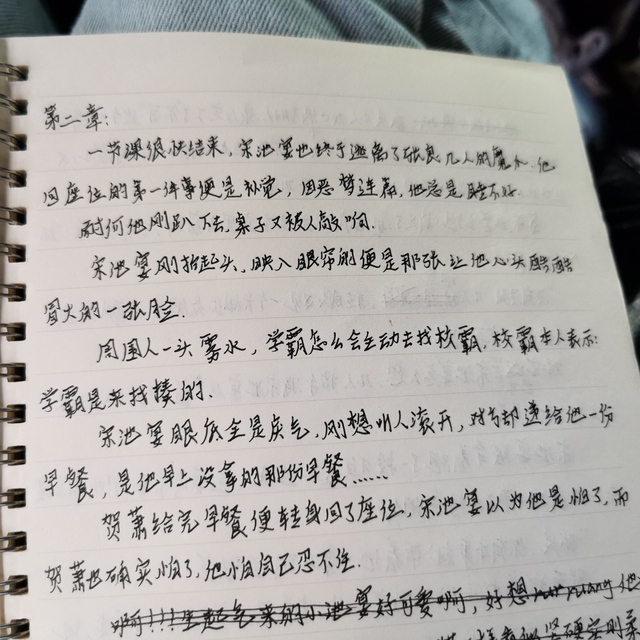 第二章:
一节课很快结束,宋池宴也终于逃离了张良几人的魔爪.他
回座位的第一件事便是补觉,因恶梦连扁,他总是睡不好.
耐何他刚趴下去,桌子又被人敲响.
宋池宴刚抬起头,映入眼帘的便是那张让他心头酷酷
冒火的一张脸.
周围人一头雾水,学霸怎么会主动去找校霸,校霸本人表示:
学霸是来找揍的.
宋池宴眼底全是戾气,刚想叫人滚开,对方却递给他一份
早餐,是他早上没拿的那份早餐……
贺萧给完早餐便转身回了座位,宋池宴以为他是怕了,而
贺萧也确实怕了,他怕自己忍不住.
啊!!!生起气来的小池宴好可爱啊,好想 他